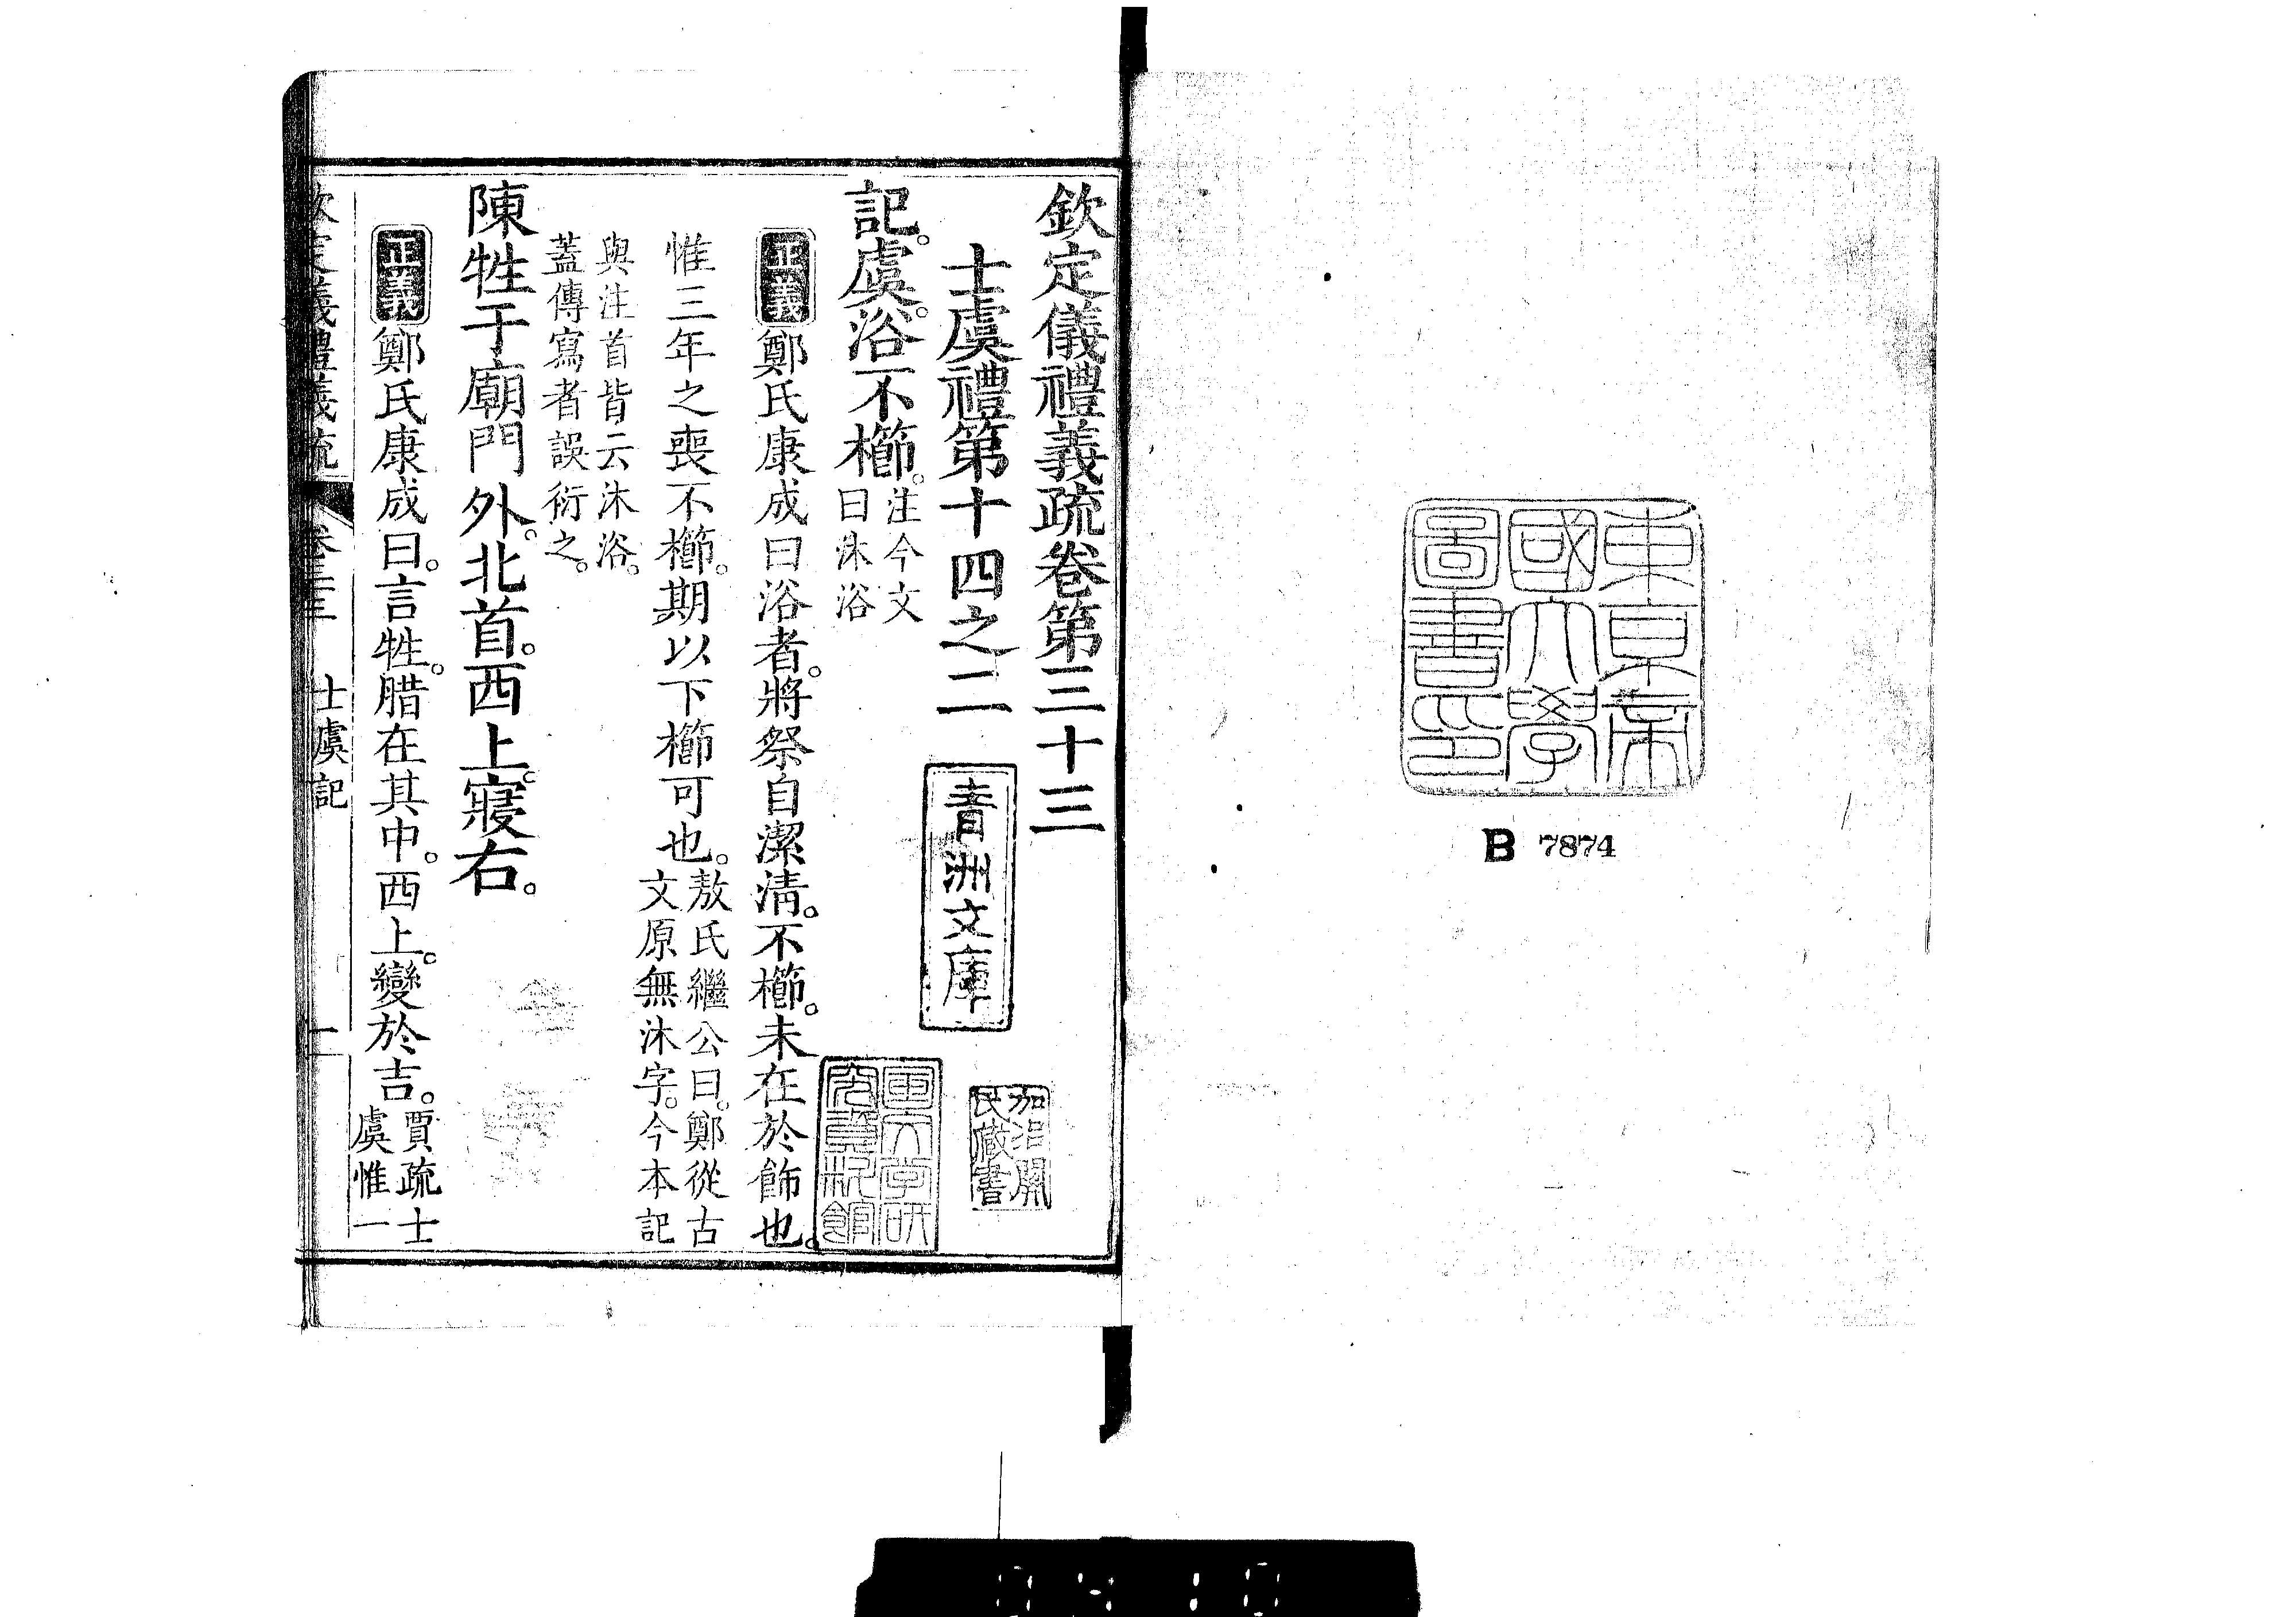 東京帝
國大學
圖書印
B 7874
欽定儀禮義疏卷第三十三
士虞禮第十四之二
青洲文庫
記。虞。浴不櫛。注今文
曰沐浴
正義鄭氏康成曰浴者。將祭自潔清。不櫛。未在於飾也。
惟三年之喪不櫛。期以下櫛可也。敖氏繼公曰。鄭從古
文原無沐字。今本記
與注首皆云沐浴。
蓋傳寫者誤衍之。
陳牲于廟門外。北首。西上。寢右。
正義鄭氏康成曰。言牲。腊在其中。西上。變於吉。賈疏士
虞惟一
欽定義禮義疏 卷三十三 士虞記 一